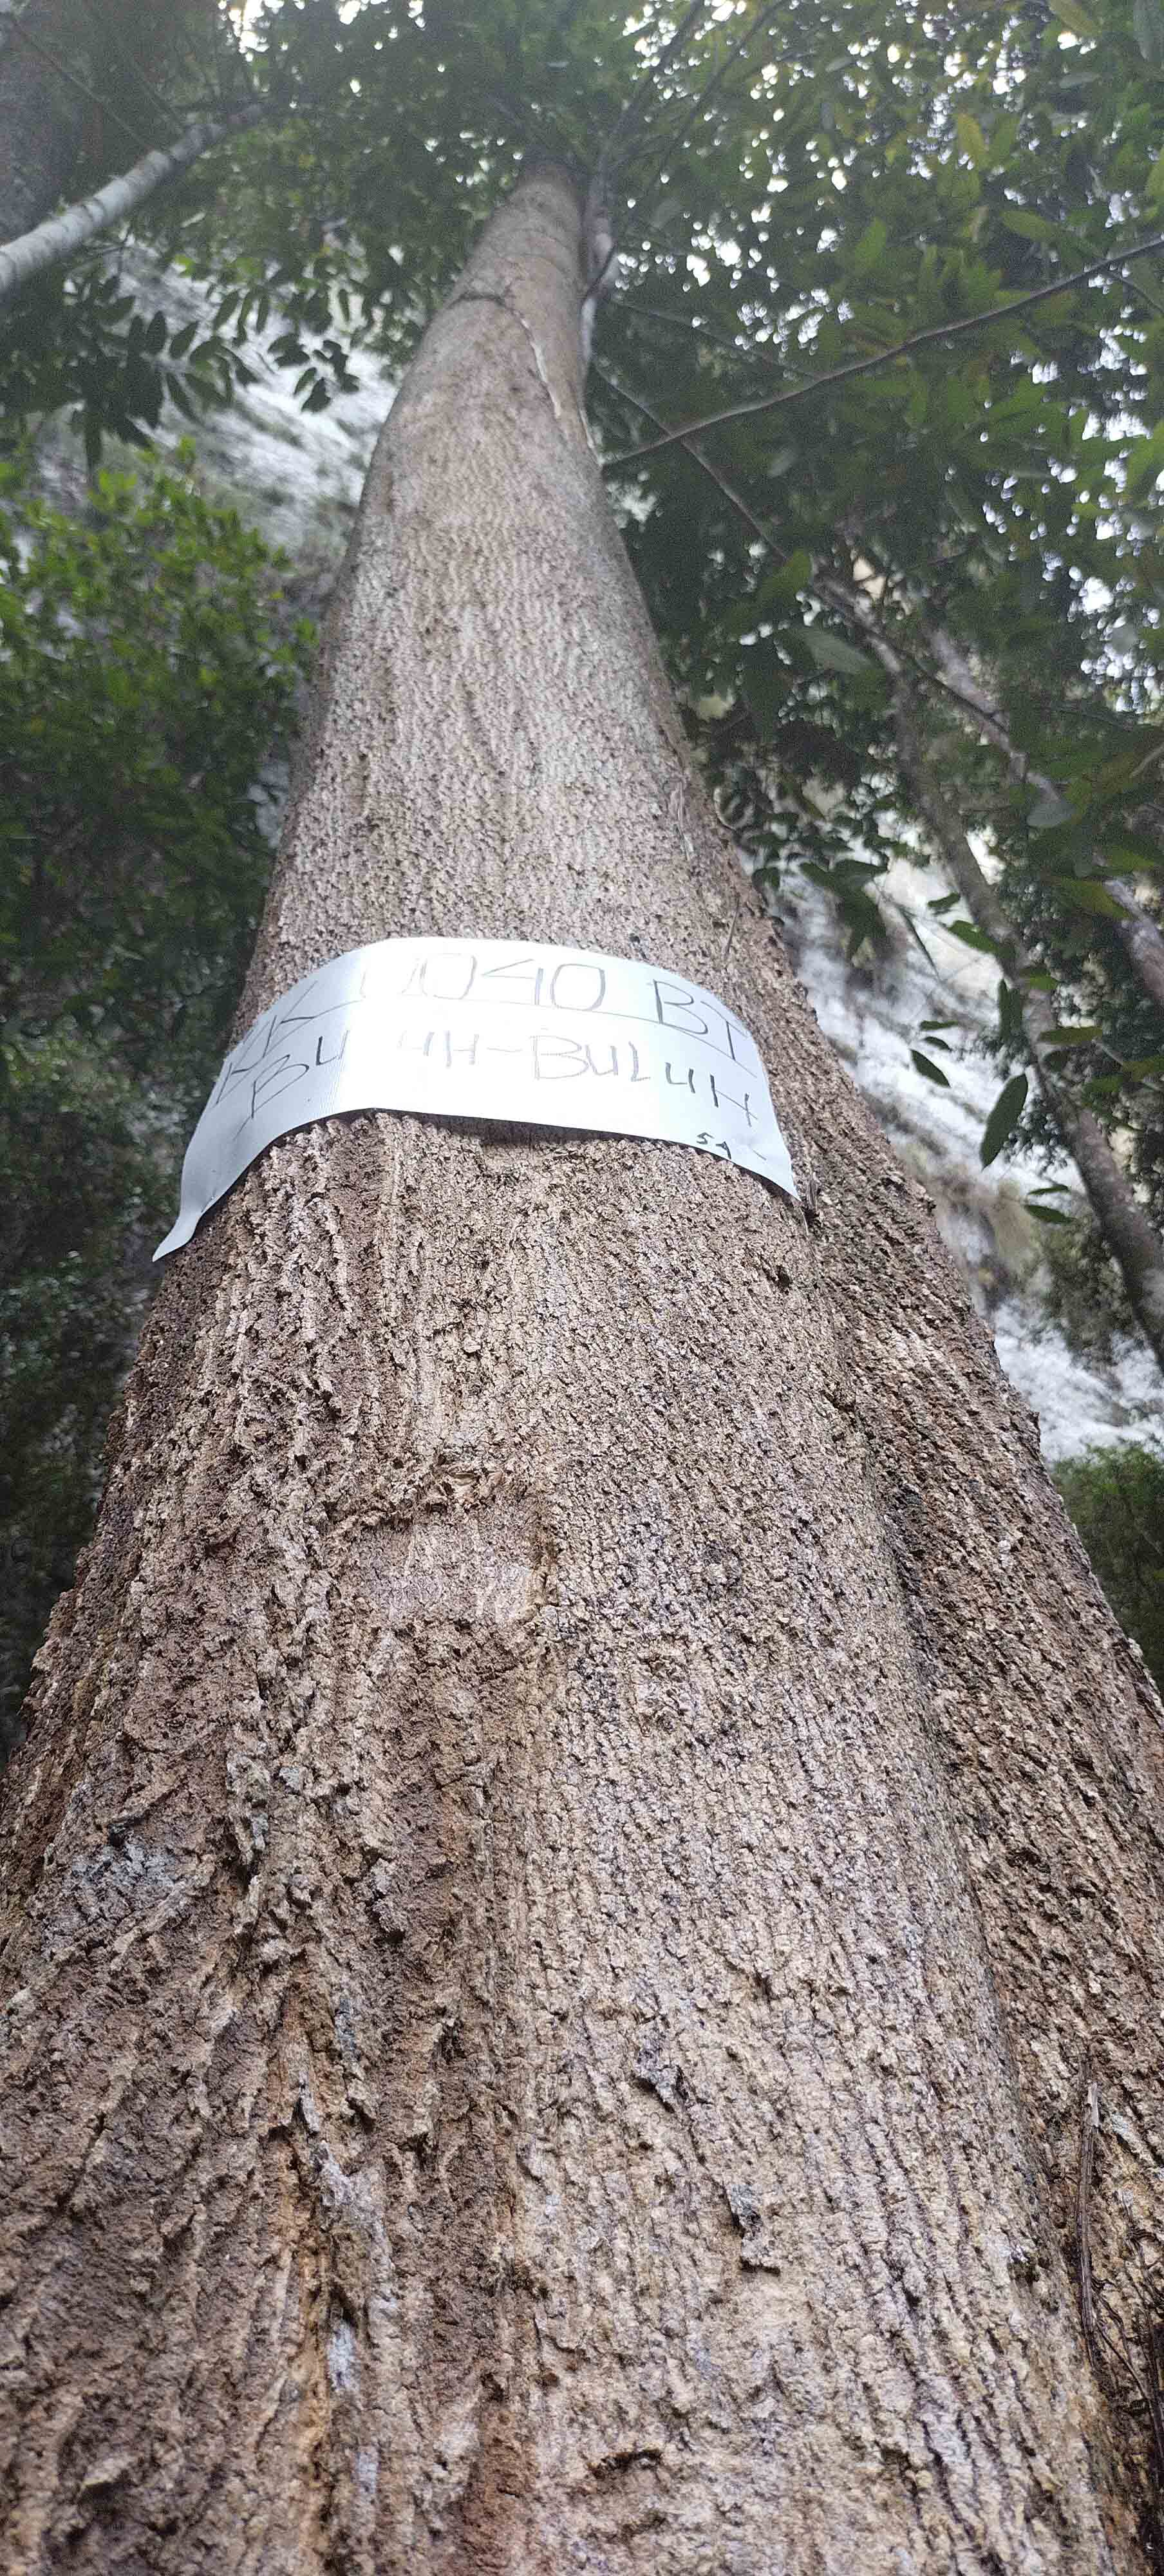 0040 BT
BULUH-BULUH
54